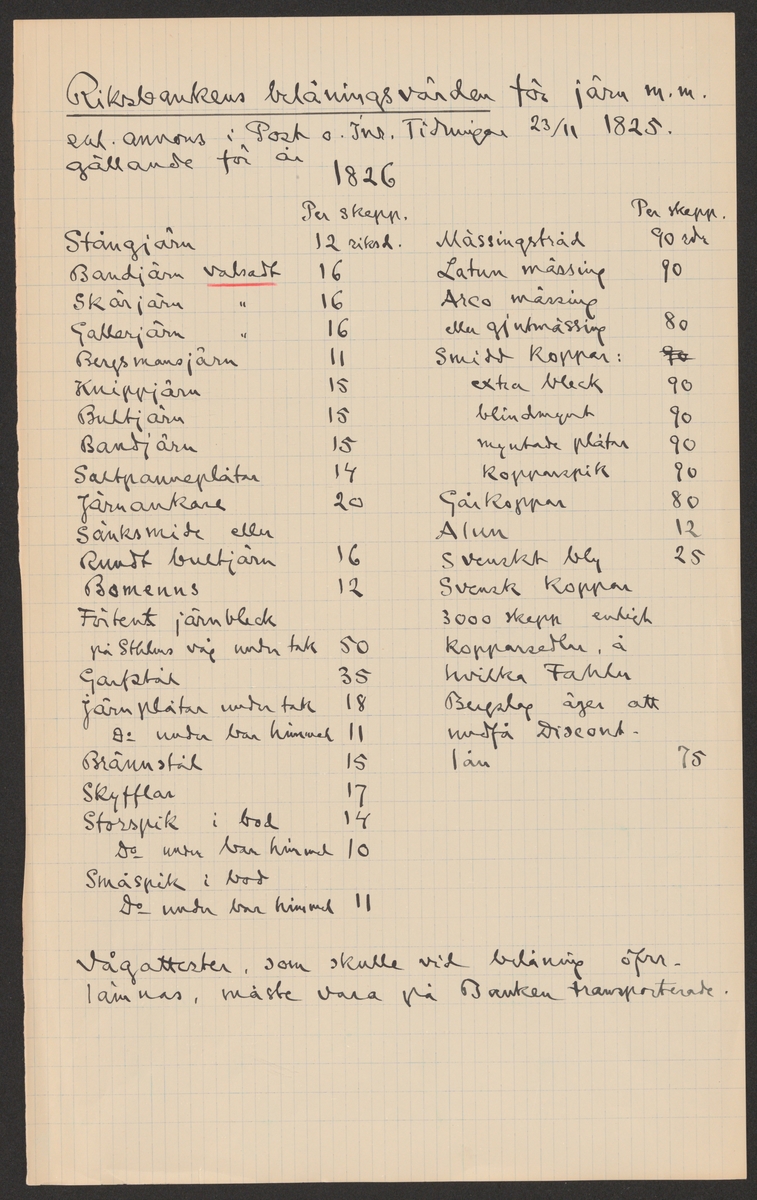 Riksbankens belåningsvärden för järn m.m.
enl. annons i Post o. Inr. Tidningar 23/11 1825.
gällande för år
1826
Per skepp.
Stångjärn 12 riksd.
Bandjärn valsadt 16
Skärjärn " 16
Gallerjärn " 16
Bergsmansjärn 11
Knippjärn 15
Bultjärn 15
Bandjärn 15
Saltpanneplåtar 14
Järnankare 20
Sänksmide eller
Rundt bultjärn 16
Bomenns 12
Förtent järnbleck
på Sthlms våg under tak 50
Garfstål 35
Järnplåtar under tak 18
Do under bar himmel 11
Brännstål 15
Skyfflar 17
Storspik i bod 14
Do under bar himmel 10
Småspik i bod
Do under bar himmel 11
Per skepp.
Mässingstråd 90 rdr
Latun mässing 90
Arco mässing
eller gjutmässing 80
Smidd koppar: 90
extra bleck 90
blindmynt 90
myntade plåtar 90
kopparspik 90
Gårkoppar 80
Alun 12
Svenskt bly 25
Svensk koppar
3000 skepp enligt
kopparsedlar, å
hvilka Fahlu
Bergslag äger att
undfå Discont-
lån 75
Vågattester, som skulle vid belåning öfver-
lämnas, måste vara på Banken transporterade.